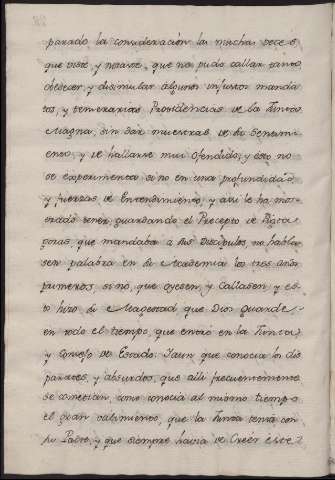 parado la consideracion las muchas veces
que viste, y notaste, que no pudo callar, tanto
obedecer, y disimular algunos injustos manda
tos, y temerarias Providencias de la Junta
Magna, sin dar muestras de su Sentimi
ento, y de hallarse mui Ofendido; y esto no
se experimenta si no en una profundidad,
y fuerzas de Entendimiento, y assi le ha mos
trado tener, guardando el Precepto de Pita
goras, que mandaba a sus Discipulos, no habla
sen palabra en su Academia los tres años
primeros, si no, que oyesen, y Callasen y es
to hizo su Magestad que Dios guarde
en todo el tiempo, que entró en la Junta,
y Consejo de Estado. Y aun que conocia los dis
parates, y absurdos, que alli frecuentemente
se cometian, como conocia al mismo tiempo
el gran valimiento, que la Junta tenia con
su Padre, y que siempre havia de Creer este